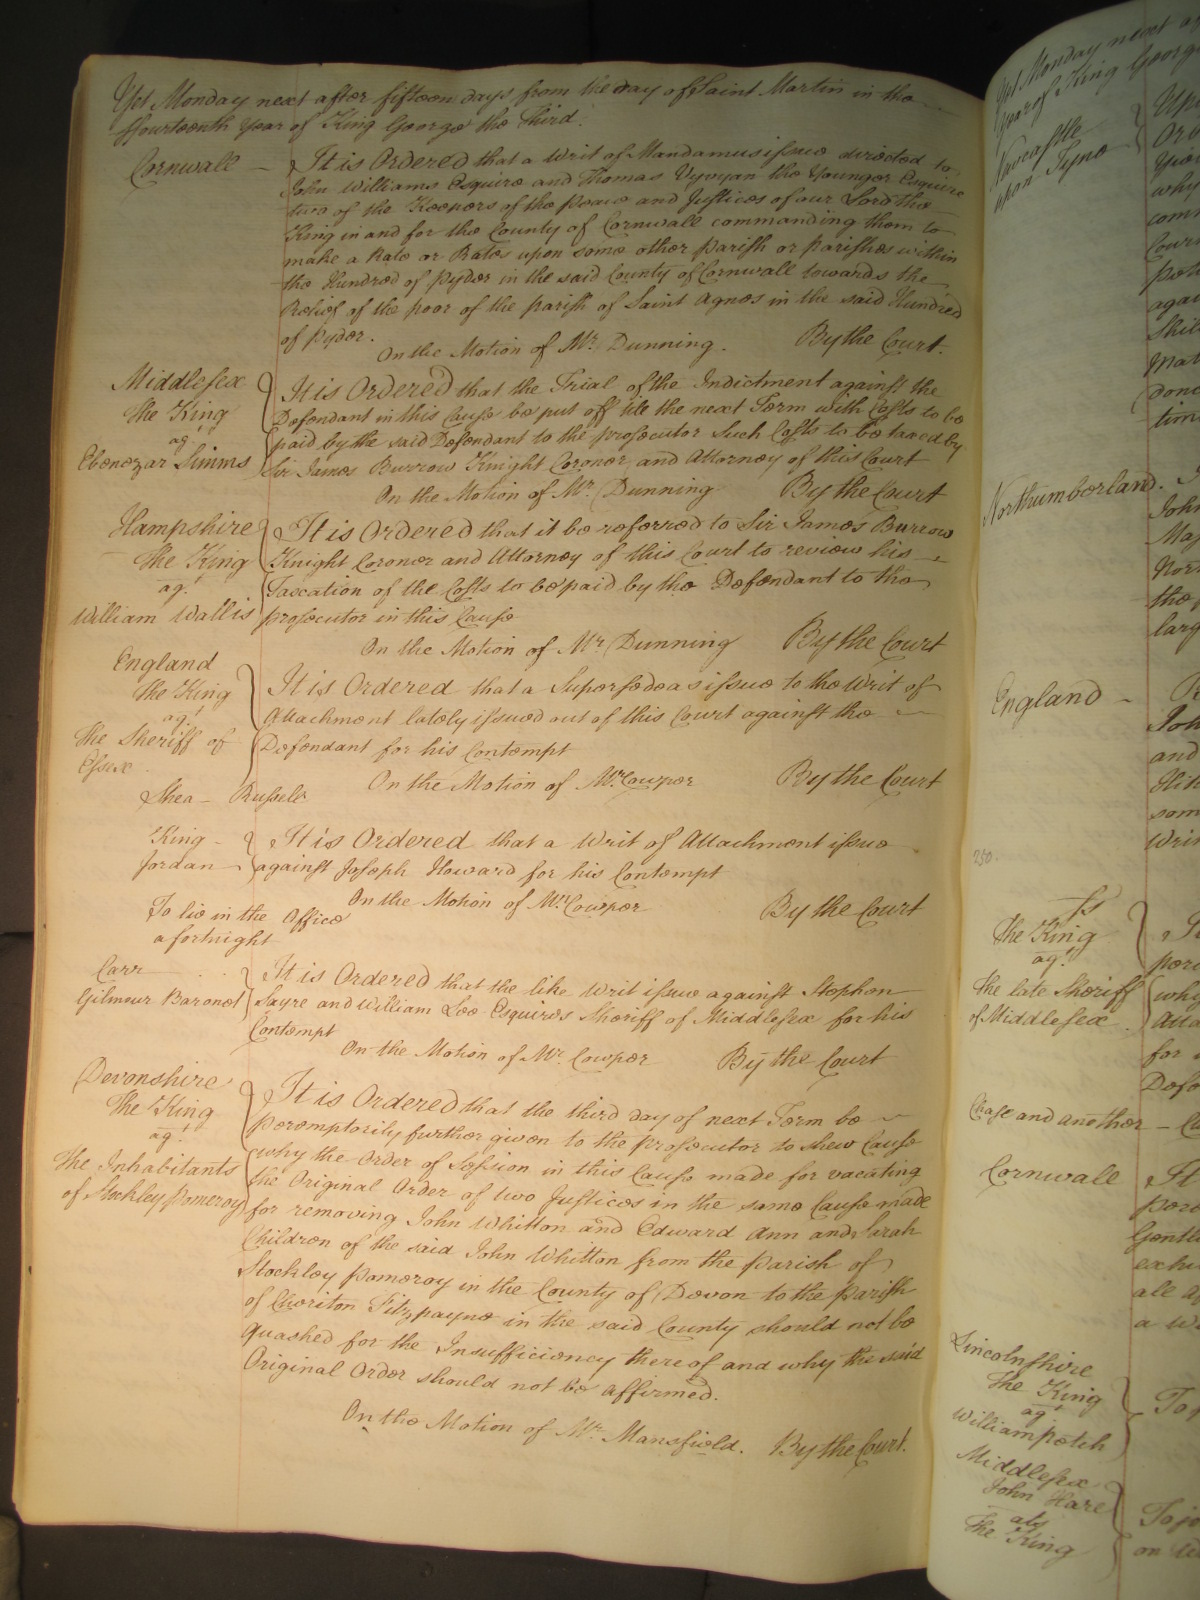 Yet Monday next after fifteen days from the day of Saint Martin in the
ffourteenth Year of King George the Third.
Cornwall – It is Ordered that a Writ of Mandamus issue directed to
John Williams Esquire and Thomas Vyvyan the Younger Esquire
two of the Keepers of the peace and Justices of our Lord the
King in and for the County of Cornwall commanding them to
make a Rate or Rates upon some other parish or parishes within
the Hundred of Pyder in the said County of Cornwall towards the
Relief of the poor of the parish of Saint Agnes in the said Hundred
of Pyder.
On the Motion of Mr. Dunning. By the Court.
Middlesex
The King
agt
Ebenezar Simms
It is Ordered that the Trial of the Indictment against the
Defendant in this Cause be put off till the next Term with Costs to be
paid by the said Defendant to the prosecutor Such Costs to be taxed by
Sir James Burrow Knight Coroner and Attorney of this Court
On the Motion of Mr. Dunning By the Court
Hampshire
The King
agt
William Wallis
It is Ordered that it be referred to Sir James Burrow
Knight Coroner and Attorney of this Court to review his
Taxcation of the Costs to be paid by the Defendant to the
prosecutor in this Cause
On the Motion of Mr. Dunning By the Court
England
The King
agt
The Sheriff of
Essex
It is Ordered that a Supersedeas issue to the Writ of
Attachment lately issued out of this Court against the
Defendant for his Contempt
On the Motion of Mr. Cowper By the Court
Shea – Russell
King –
Jordan
It is Ordered that a Writ of Attachment issue
against Joseph Howard for his Contempt
On the Motion of Mr. Cowper By the Court
To lie in the Office
a fortnight
Carr
Gilmour Baronet
It is Ordered that the like Writ issue against Stephen
Sayre and William Lee Esquires Sheriff of Middlesex for his
Contempt
On the Motion of Mr. Cowper By the Court
Devonshire
The King
agt
The Inhabitants
of Stockley Pomeroy
It is Ordered that the third day of next Term be
peremptorily further given to the prosecutor to shew Cause
why the Order of Session in this Cause made for vacating
the Original Order of two Justices in the same Cause made
for removing John Whitton and Edward Ann and Sarah
Children of the said John Whitton from the parish of
Stockley Pomeroy in the County of Devon to the parish
of Cheriton Fitzpayne in the said County should not be
quashed for the Insufficiency thereof and why the said
Original Order should not be affirmed.
On the Motion of Mr. Mansfield. By the Court.
Yet Monday next
Year of King George
Newcastle
upon Tyne
why
Northumberland.
John
the
England –
and
250.
Ss
The King
agt
The late Sheriff
of Middlesex
why
for
Chase and another –
Cornwall
a
Lincolnshire
The King
agt
William
Middlesex
John Hare
ats
The King
on